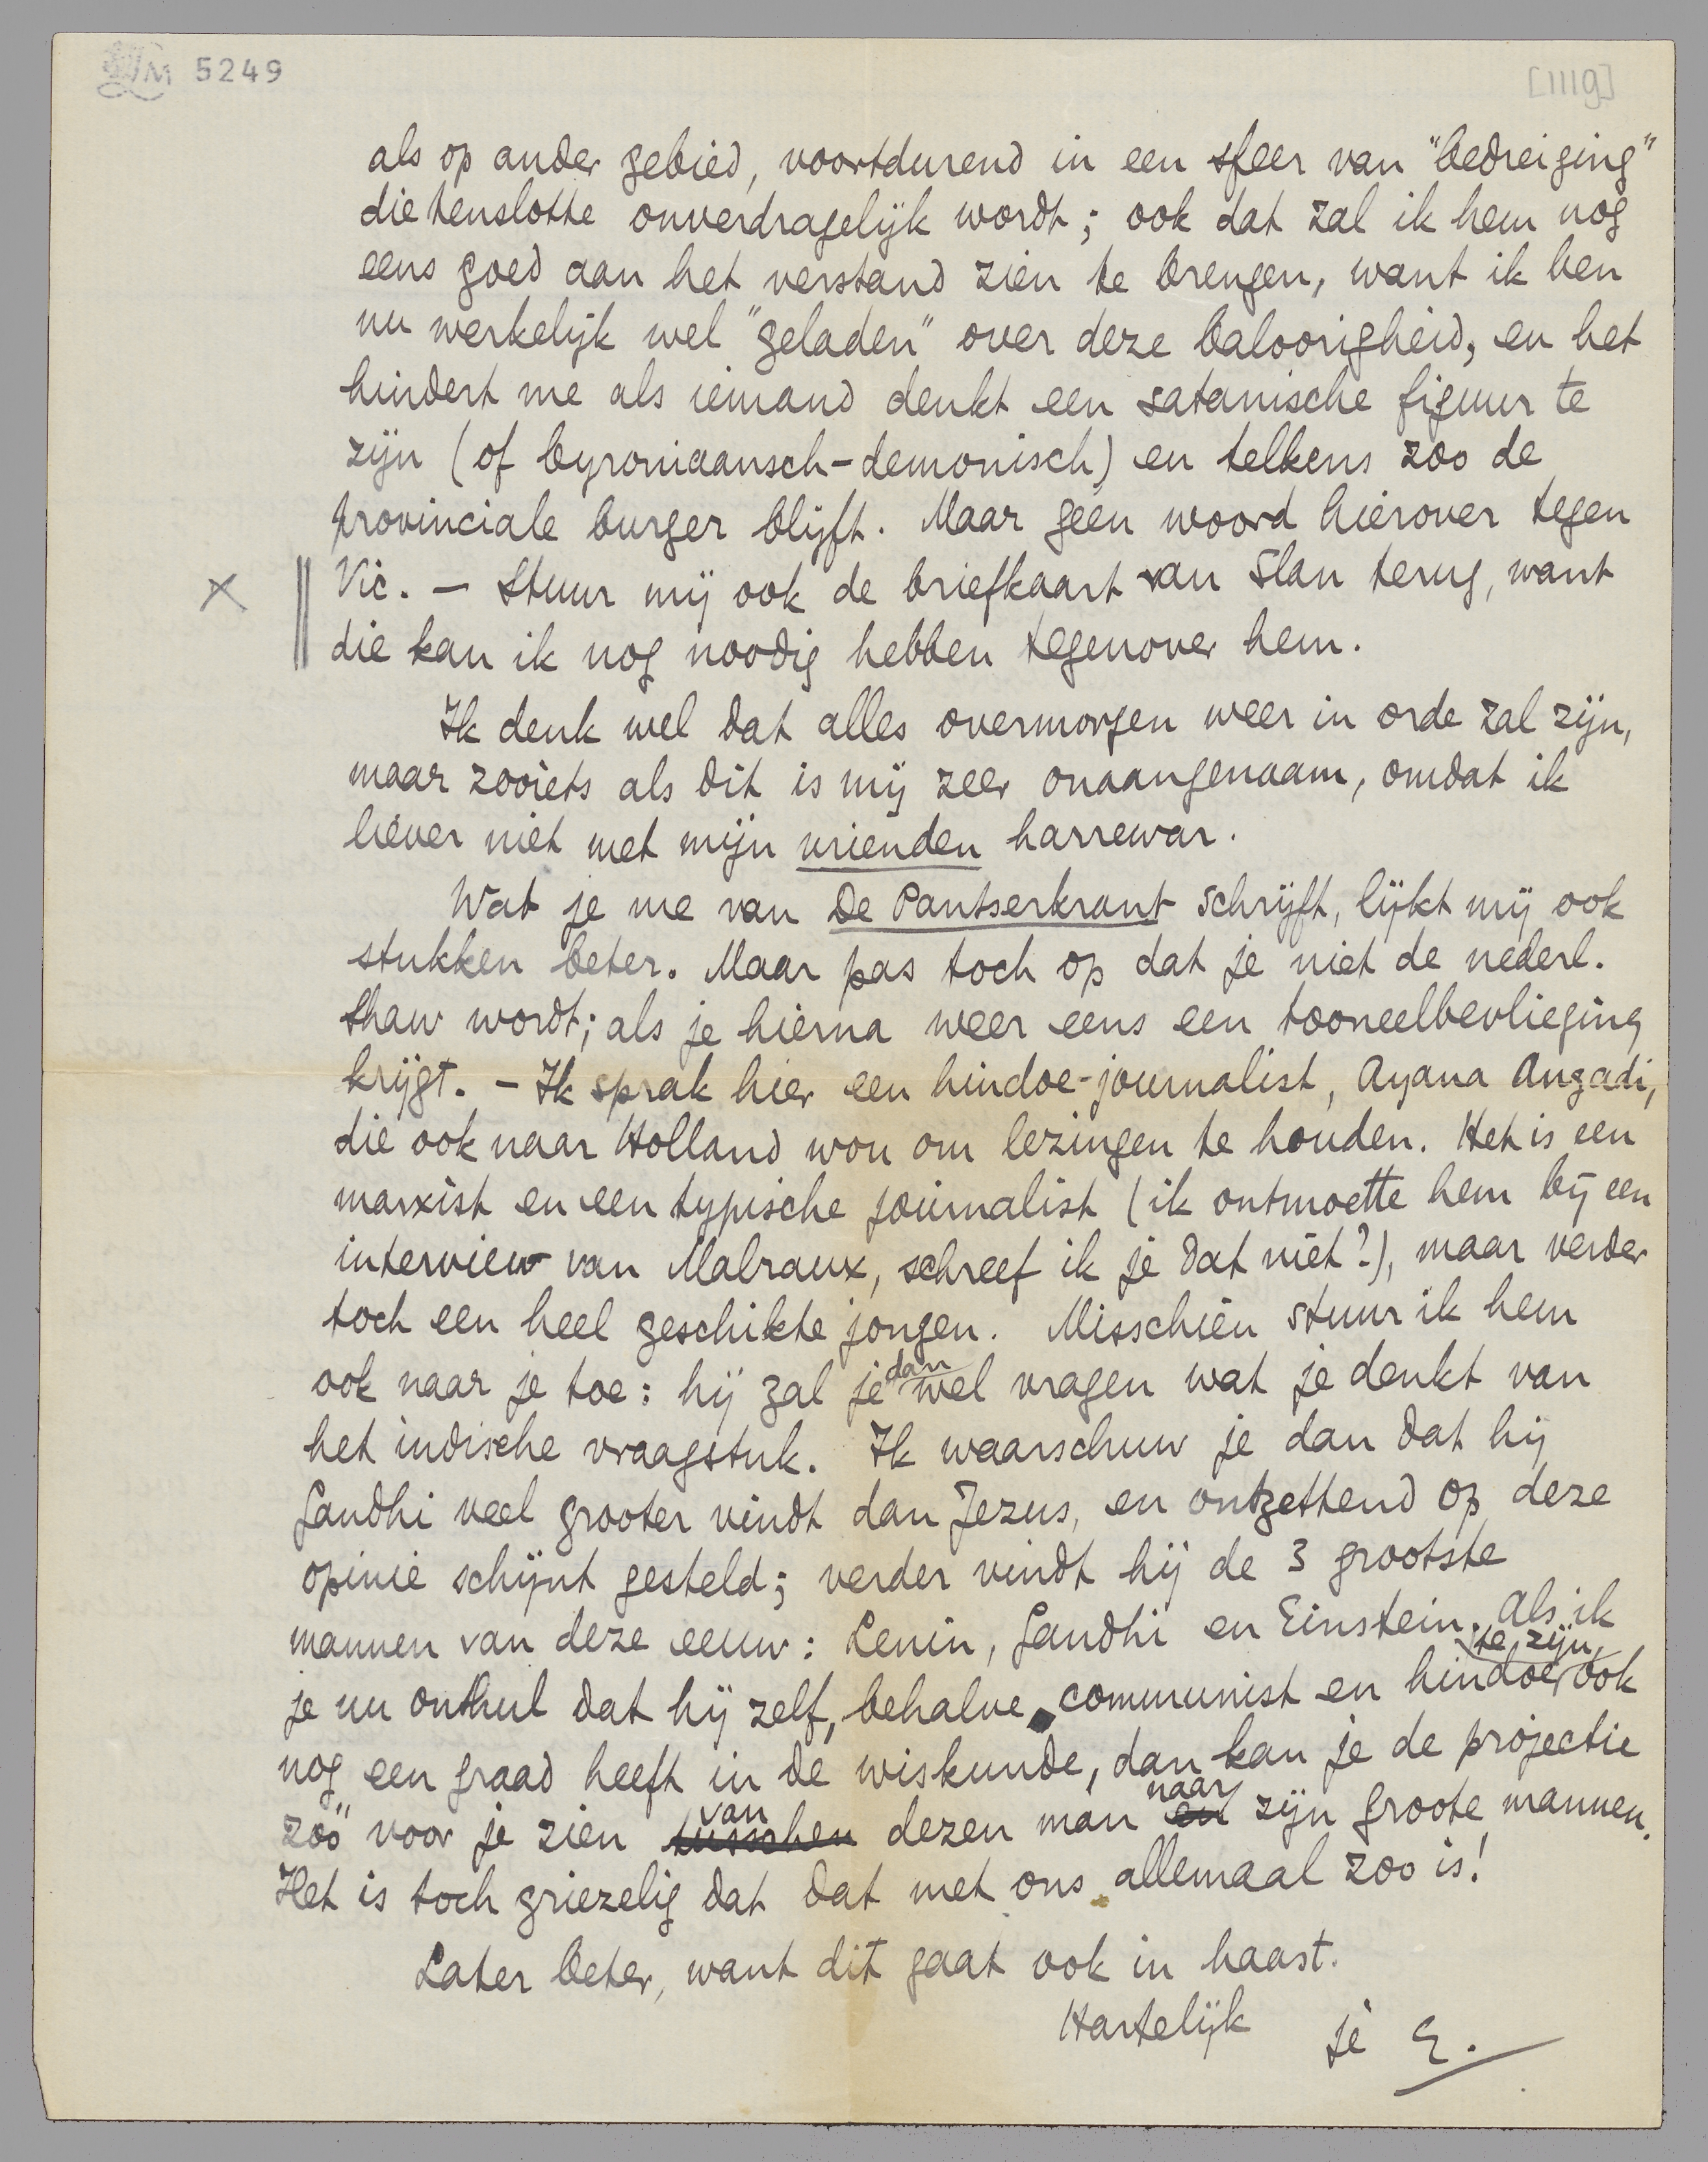 LM 5249
[1119]
als op ander gebied, voortdurend in een sfeer van "bedreiging"
die tenslotte onverdragelijk wordt; ook dat zal ik hem nog
eens goed aan het verstand zien te brengen, want ik ben
nu werkelijk wel "geladen" over deze baloorigheid, en het
hindert me als iemand denkt een satanische figuur te
zijn (of byroniaansch-demonisch) en telkens zoo de
provinciale burger blijft. Maar geen woord hierover tegen
X || Vic. — Stuur mij ook de briefkaart van Slau terug, want
die kan ik nog noodig hebben tegenover hem.
Ik denk wel dat alles overmorgen weer in orde zal zijn,
maar zooiets als dit is mij zeer onaangenaam, omdat ik
liever niet met mijn vrienden harrewar.
Wat je me van De Pantserkrant schrijft, lijkt mij ook
stukken beter. Maar pas toch op dat je niet de nederl.
Shaw wordt; als je hierna weer eens een tooneelbevlieging
krijgt. — Ik sprak hier een hindoe-journalist, Ayana Angadi,
die ook naar Holland wou om lezingen te houden. Het is een
marxist en een typische journalist (ik ontmoette hem bij een
interview van Malraux, schreef ik je dat niet?), maar verder
toch een heel geschikte jongen. Misschien stuur ik hem
ook naar je toe: hij zal je dan wel vragen wat je denkt van
het indische vraagstuk. Ik waarschuw je dan dat hij
Gandhi veel grooter vindt dan Jezus, en ontzettend op deze
opinie schijnt gesteld; verder vindt hij de 3 grootste
mannen van deze eeuw: Lenin, Gandhi en Einstein. Als ik
je nu onthul dat hij zelf, behalve communist en hindoe te zijn, ook
nog een graad heeft in de wiskunde, dan kan je de projectie
zóó voor je zien tusschen van dezen man en naar zijn groote mannen.
Het is toch griezelig dat dat met ons allemaal zoo is!
Later beter, want dit gaat ook in haast.
Hartelijk je E.